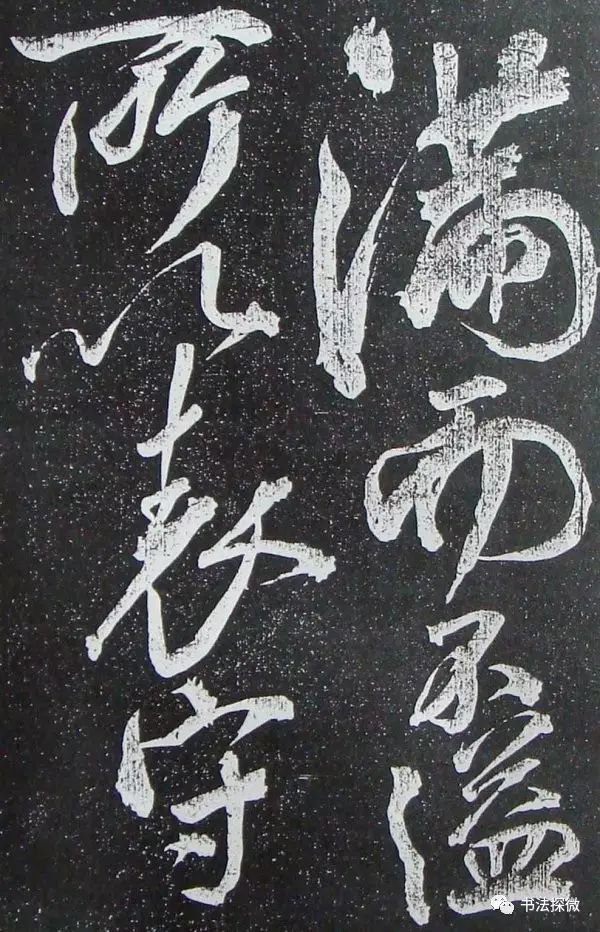 滿而不溢
所以長守
书法探微